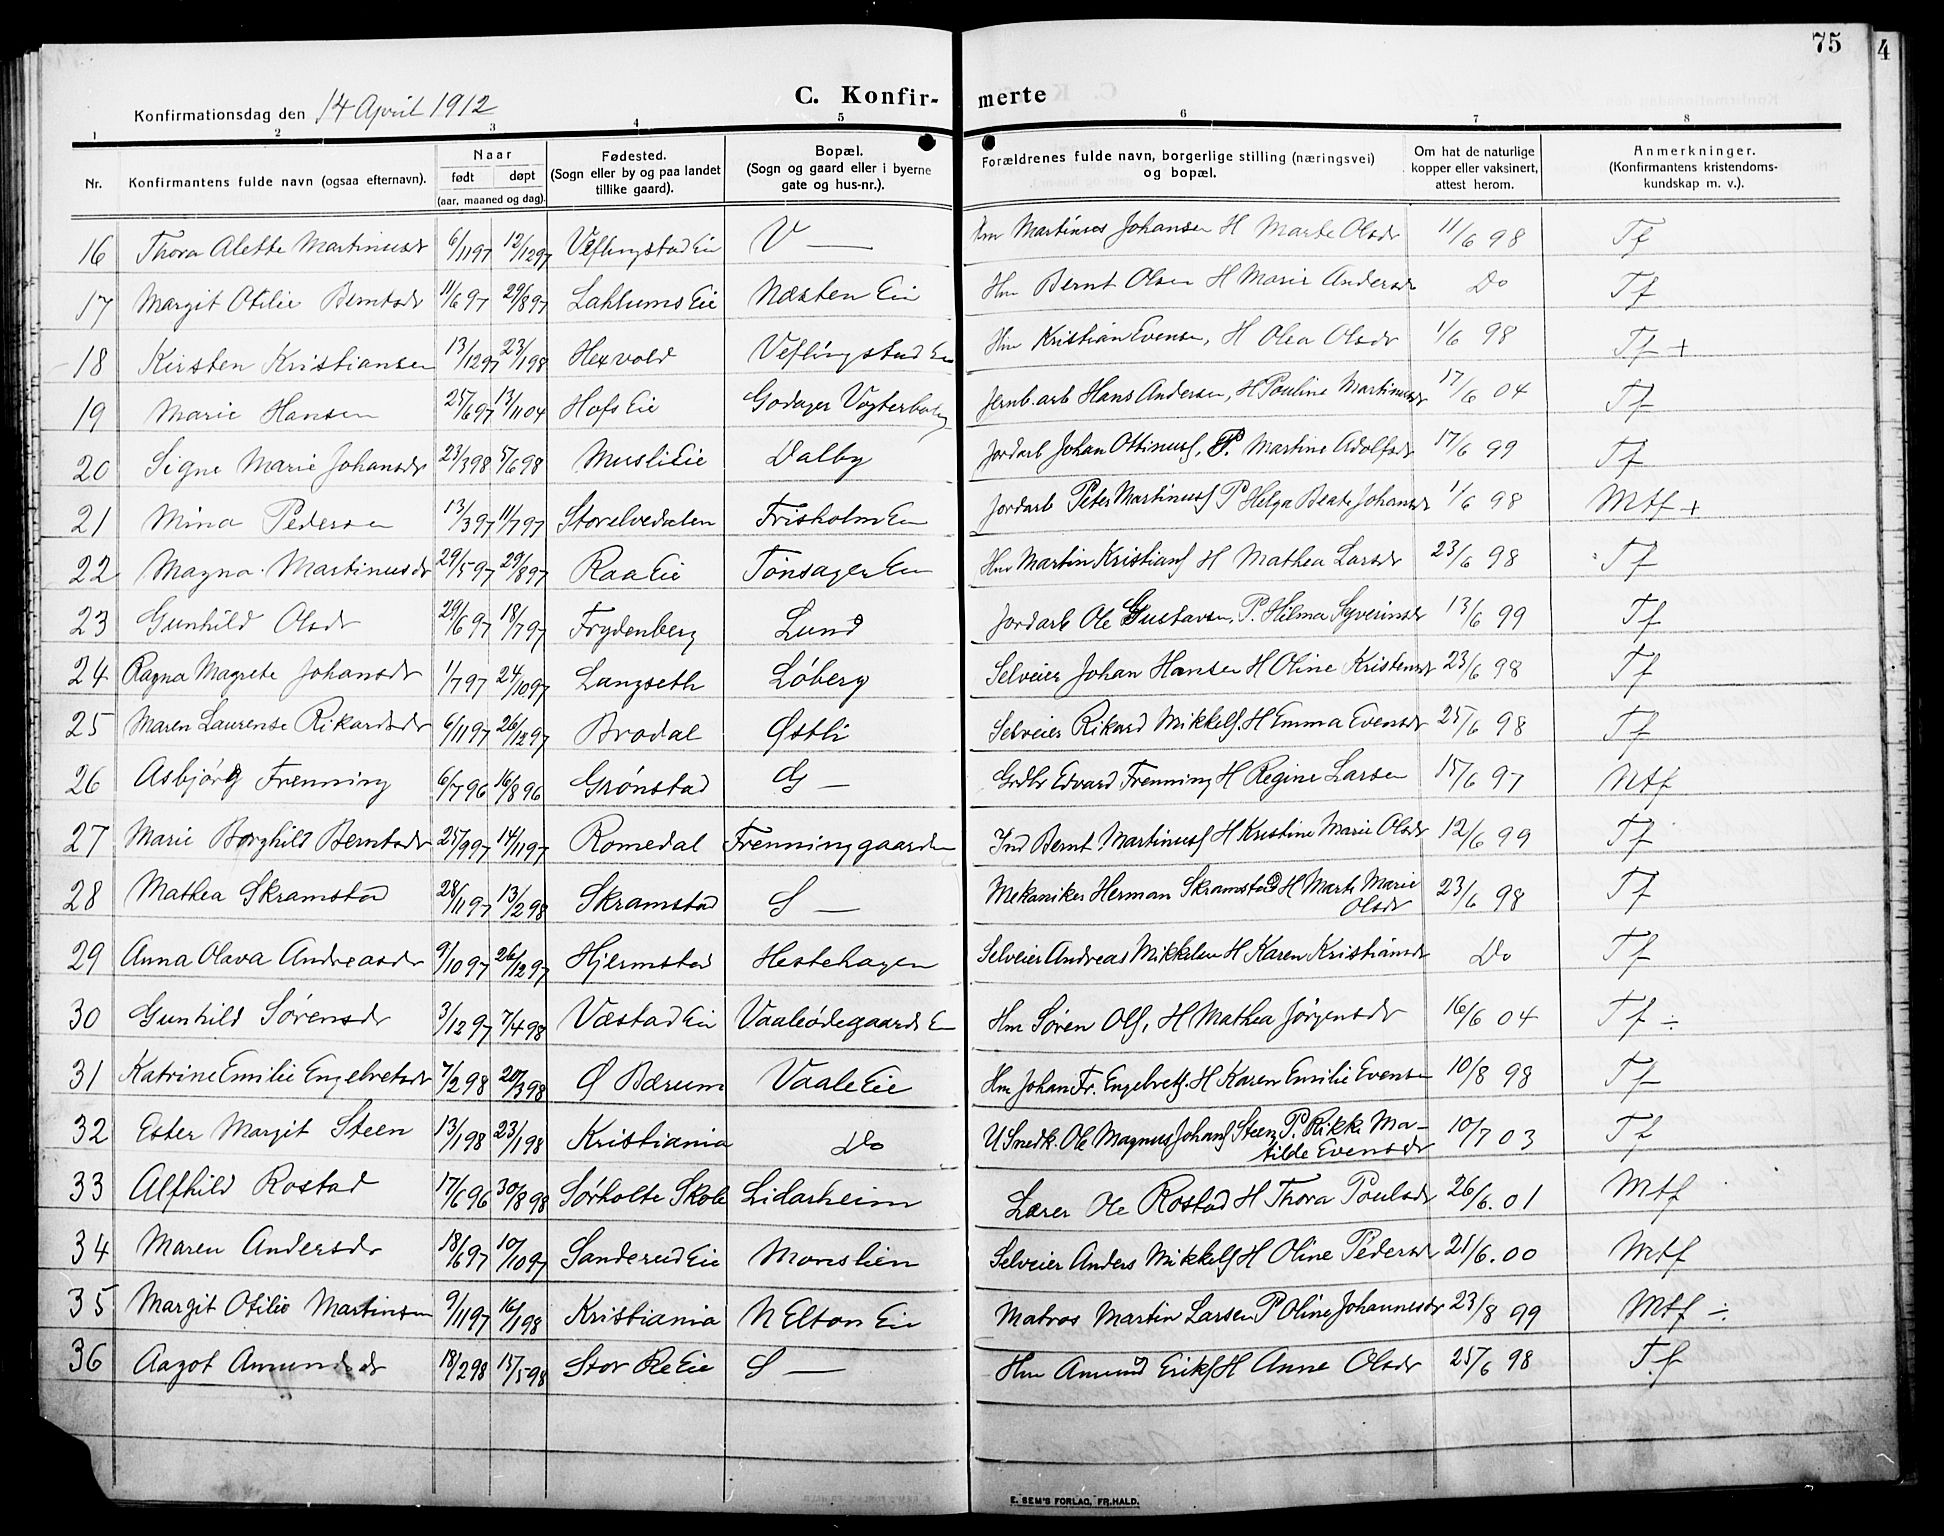 75
4
Konfirmationsdag den 14 April 1912
C. Konfir- merte
1 2 3 4 5 6 7 8
Nr. Konfirmantens fulde navn (ogsaa efternavn). Naar født døpt (aar, maaned og dag). Fødested. (Sogn eller by og paa landet tillike gaard). Bopæl. (Sogn og gaard eller i byerne gate og hus-nr.). Forældrenes fulde navn, borgerlige stilling (næringsvei) og bopæl. Om hat de naturlige kopper eller vaksinert, attest herom. Anmerkninger. (Konfirmantens kristendoms- kundskap m. v.).
16 Thora Alette Martinusdr 6/11 97 12/12 97 Veflingstad Eie V — Hm Martinus Johansen H Marte Olsdr 11/6 98 Tf
17 Margit Otilie Berntsdr 11/6 97 29/8 97 Lahlums Eie Næsten Eie Hm Bernt Olsen H Marie Andersdr Do Tf
18 Kirsten Kristiansen 13/12 97 23/1 98 Hexvold Veflingstad Eie Hm Kristian Evensen, H Olea Olsdr 1/6 98 Tf +
19 Marie Hansen 25/6 97 13/11 04 Hofs Eie Godager Vogterbolig Jernb.arb Hans Andersen, H Pauline Martinusdr 17/6 04 Tf
20 Signe Marie Johansdr 23/3 98 5/6 98 Musli Eie Dalby Jordarb Johan Ottinusf, P. Martine Adolfsdr 17/6 99 Tf
21 Mina Pedersen 13/3 97 11/7 97 Storelvedalen Frisholm Eie Jordarb Peter Martinusf P Helga Beate Johansdr 1/6 98 Mtf +
22 Magna Martinusdr 29/5 97 29/8 97 Raa Eie Tønsager Eie Hm Martin Kristiansf H Mathea Larsdr 23/6 98 Tf
23 Gunhild Olsdr 29/6 97 18/7 97 Frydenberg Lund Jordarb Ole Gustavsen, P. Hilma Syverinsdr 13/6 99 Tf
24 Ragna Magrete Johansdr 1/7 97 24/10 97 Langseth Løberg Selveier Johan Hansen H Oline Kristensdr 23/6 98 Tf
25 Maren Laurense Rikardsdr 6/11 97 26/12 97 Brodal Østli Selveier Rikard Mikkelsf. H Emma Evensdr 25/6 98 Tf
26 Asbjørg Frenning 6/7 96 16/8 96 Grønstad G — Grdbr Edvard Frenning H Regine Larsen 15/6 97 Mtf
27 Marie Borghild Berntsdr 25/9 97 14/11 97 Romedal Frenninggaarden Ind Bernt Martinusf H Kristine Marie Olsdr 12/6 99 Tf
28 Mathea Skramstad 28/11 97 13/2 98 Skramstad S — Mekaniker Herman Skramstad H Marte Marie Olsdr 23/6 98 Tf
29 Anna Olava Andreasdr 9/10 97 26/12 97 Hjermstad Hestehagen Selveier Andreas Mikkelsen H Karen Kristiansdr Do Tf
30 Gunhild Sørensdr 3/12 97 7/4 98 Væstad Eie Vaaleødegaards E Hm Søren Olsf, H Mathea Jørgensdr 16/6 04 Tf ÷
31 Katrine Emilie Engelretsdr 7/2 98 20/3 98 Ø Bærum Vaale Eie Hm Johan Fr. Engelretsf. H Karen Emilie Evensen 10/8 98 Tf
32 Ester Margit Steen 13/1 98 23/1 98 Kristiania Do U Snedk. Ole Magnus Johansf Steen P. Rikke Ma- tilde Evensdr 10/7 03 Tf
33 Alfhild Rostad 17/6 96 30/8 98 Sørholte Skole Lidarheim Lærer Ole Rostad H Thora Poulsdr 26/6. 01 Mtf
34 Maren Andersdr 18/6 97 10/10 97 Sanderud Eie Monslien Selveier Anders Mikkelsf H Oline Pedersdr 21/6. 00 Mtf
35 Margit Otilie Martinsen 9/11 97 16/1 98 Kristiania N Elton Eie Matros Martin Larsen P Oline Johannesdr 23/8 99 Mtf ÷
36 Aagot Amundsdr 18/2 98 15/5 98 Stor Re Eie S — Hm Amund Eriksf H Anne Olsdr 25/6 98 Tf
E. SEM'S FORLAG, FR.HALD.